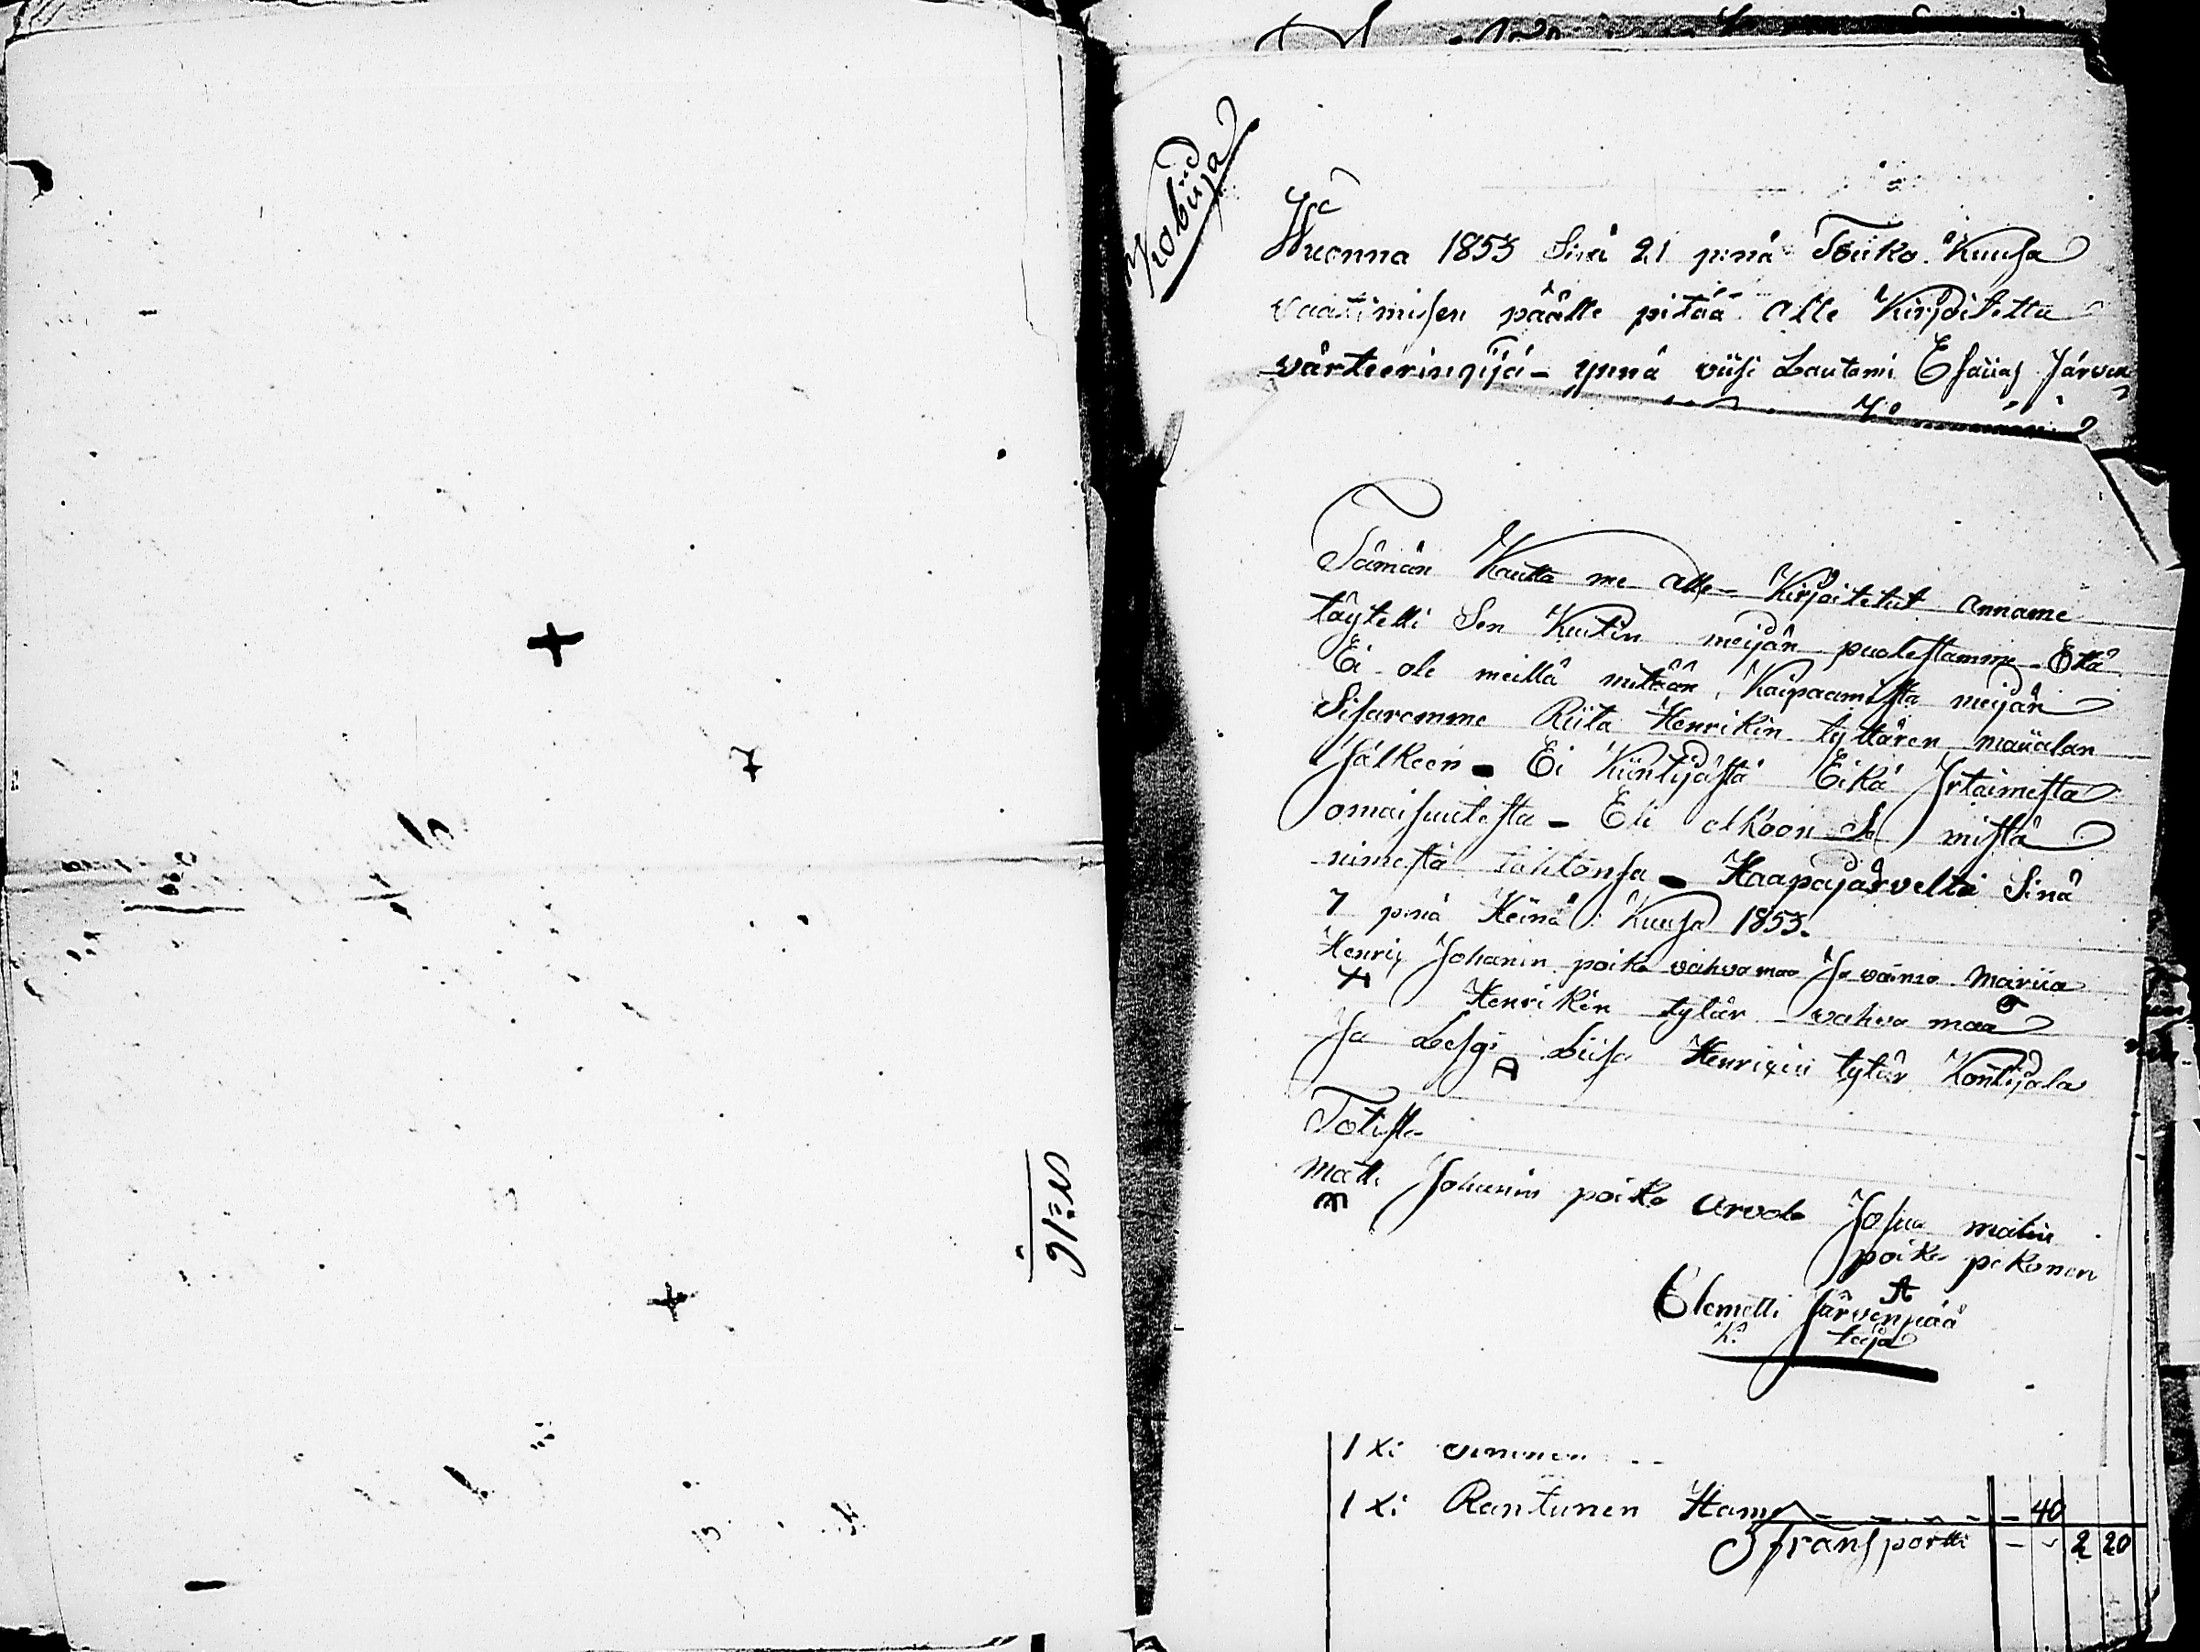 N:16
Kobiija
Wuonna 1853 Sinä 21 p:nä Touko Kuusa
vaatimisen päälle pitää alle Kirjoitettu
värteerinkijä - ynnä viisi Lautami Esaiias Järven
Tämän Kautta me alle- Kirjoitetut anname
täytelli Sen Kuitin meijän puolestamme Etä
Ei ole meillä mitään Kaipaamista meijän
Sisaremme Riita Henrikin tyttären maiialan
Jälkeen - Ei Kiintijästä Eikä Jrtaimesta
omaisuutesta - Eli olkoon Se mistä
nimestä tahtonsa - Haapajärveltä Sinä
7 p:nä Heinä: Kuusa 1853.
Henrix Johanin poika vahvamaa Ja vaimo Mariia
Henrikin tytär vahva maa
Ja Leski Liisa Henrixin tytär Kontijala
Totista
Matti Johanin poika Arvola Josua matin
poika pekonen
Elemetti Järvenpää
K: teija
1 xi
1 xi Rantunen Ham - - - - - - 40
Transportti - - 2 20